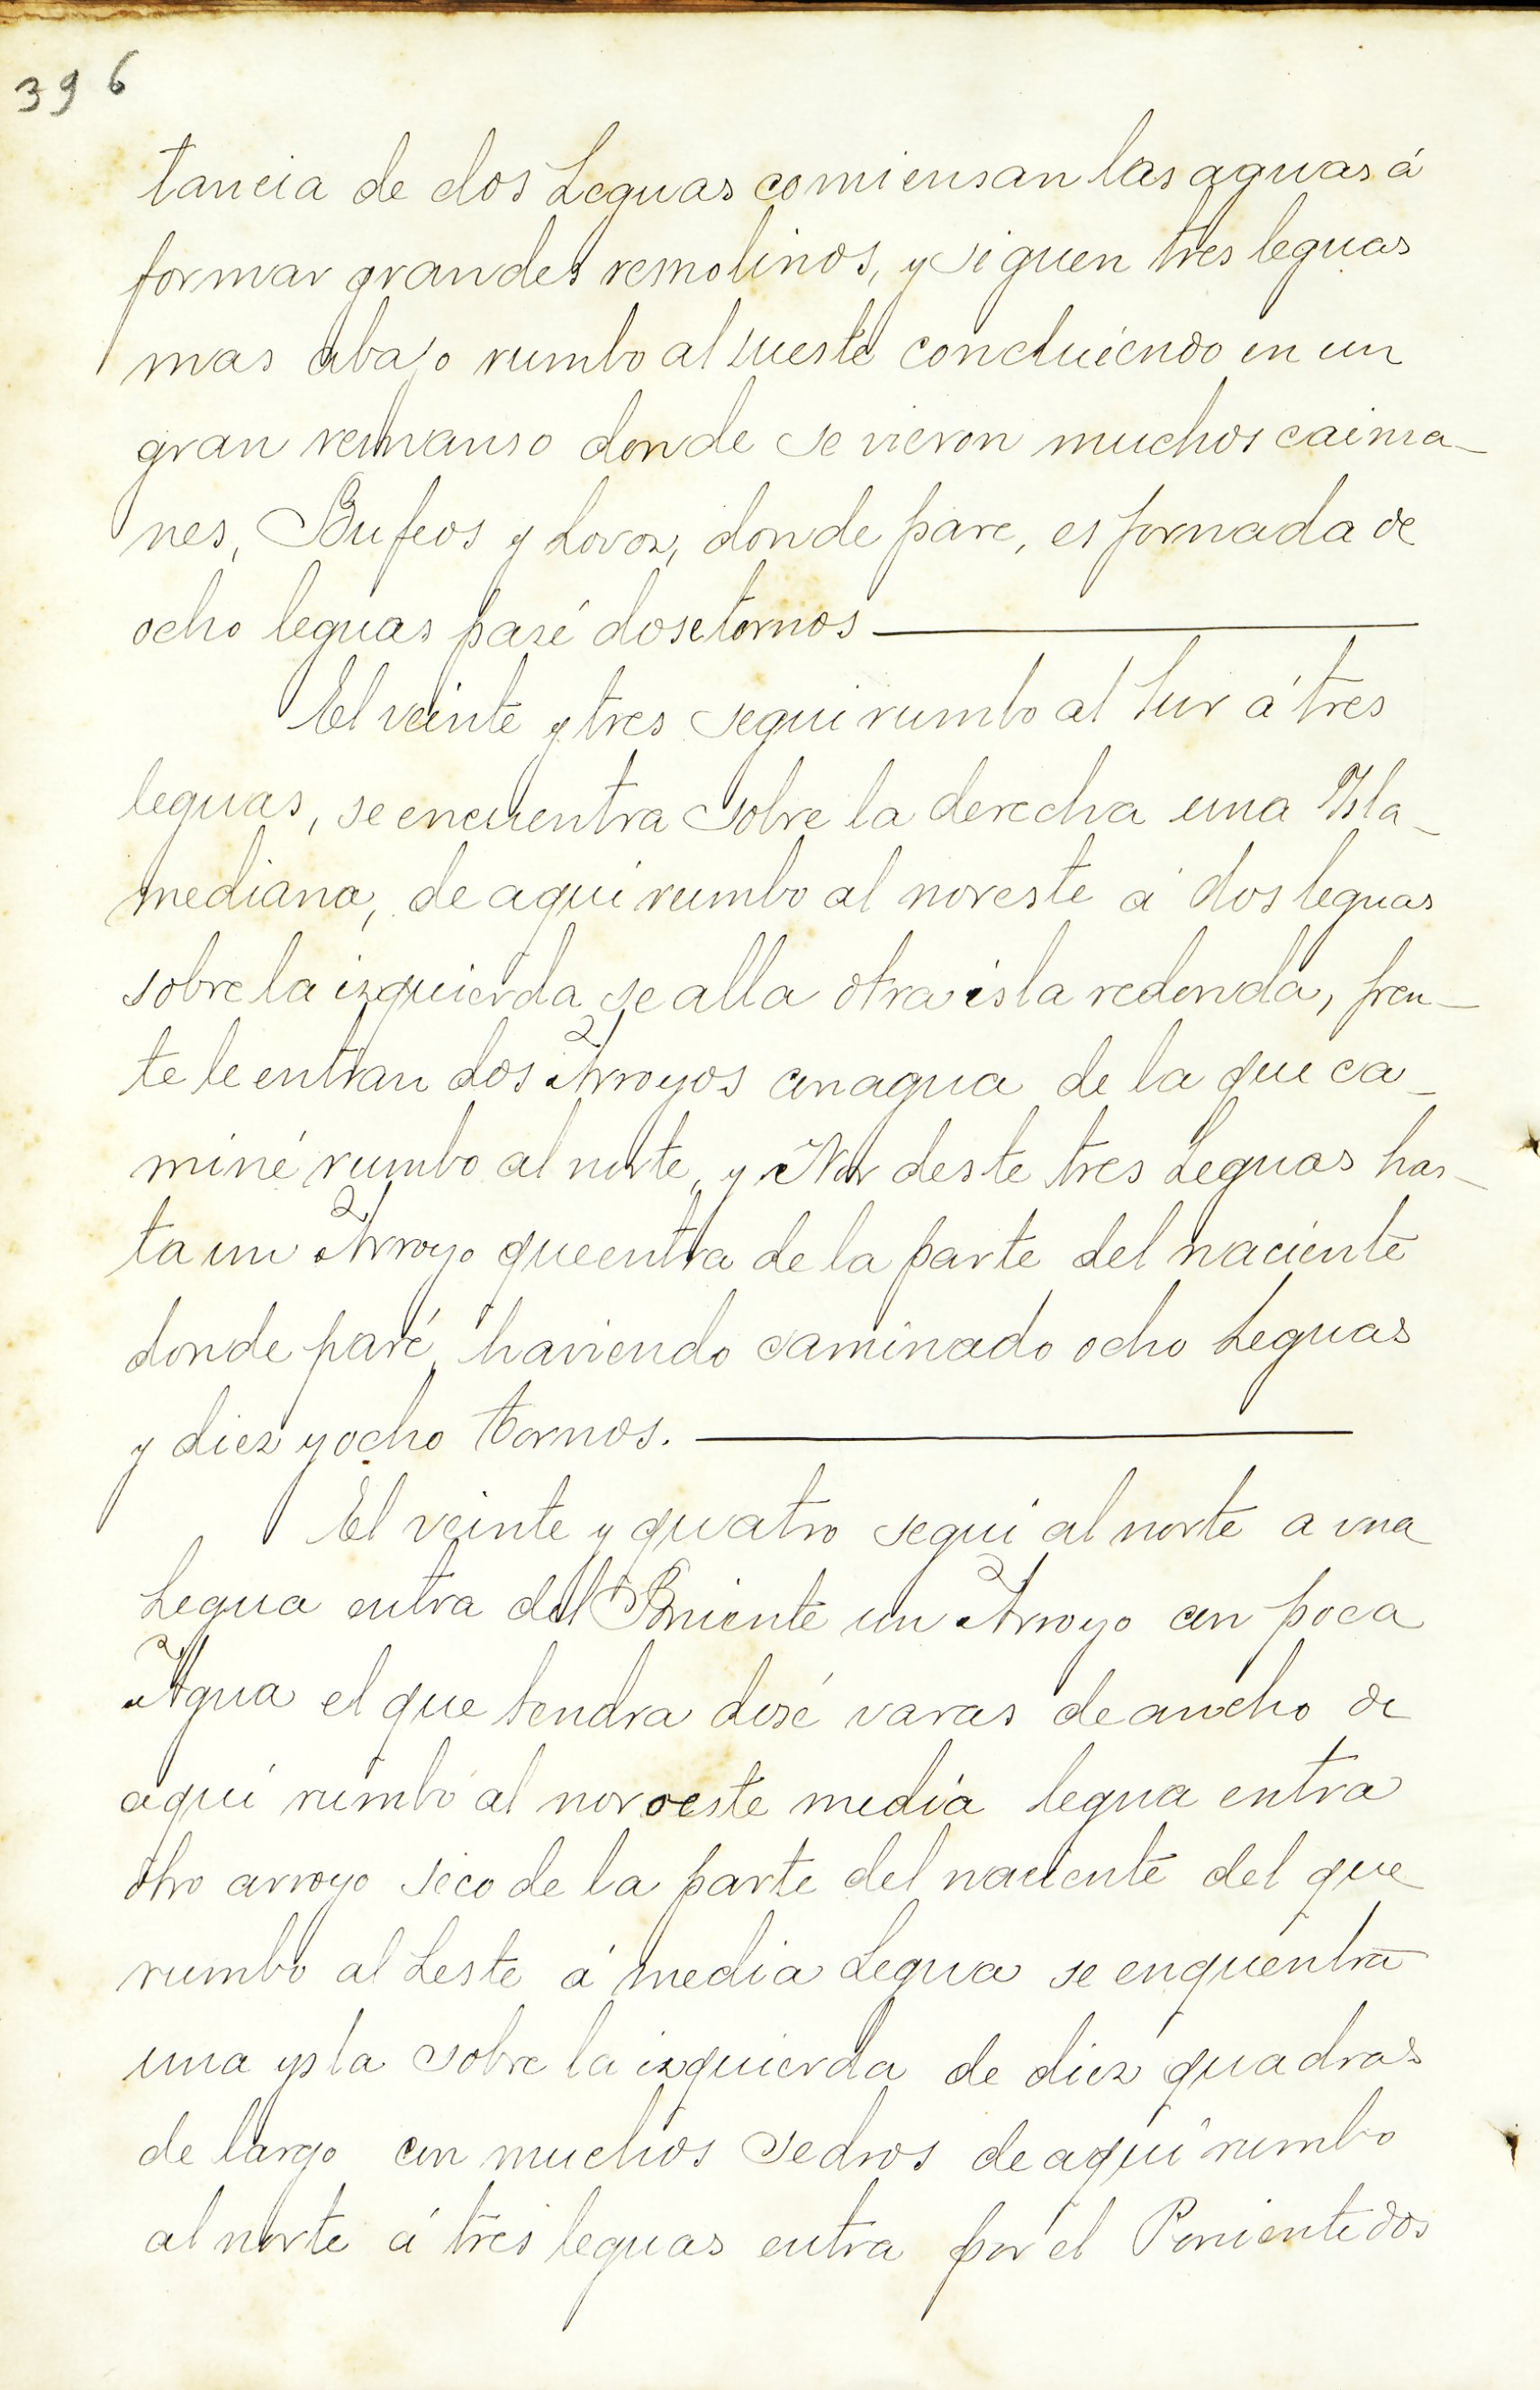 396
tancia de dos Leguas comiensan las aguas á
formar grandes remolinos, y siguen tres leguas
mas abajo rumbo al sueste concluiendo en un
gran remanso donde se vieron muchos caima-
nes, Bufeos y Lovos, donde pare, es jornada de
ocho leguas pasé dose tornos
El veinte y tres segui rumbo al Sur á tres
leguas, se encuentra sobre la derecha una Isla
mediana, de aqui rumbo al noreste á dos leguas
sobre la izquierda se alla otra isla redonda, fren-
te le entran dos Arroyos con agua de la que ca-
miné rumbo al norte, y Nordeste tres Leguas has-
ta un Arroyo que entra de la parte del naciente
donde paré, haviendo caminado ocho Leguas
y diez y ocho tornos.
El veinte y quatro segui al norte a una
Legua entra del Poniente un Arroyo con poca
Agua el que tendra dosé varas de ancho de
aqui rumbo al noroeste media legua entra
otro arroyo seco de la parte del naciente del que
rumbo al Leste á media Legua se enquentra
una ysla sobre la izquierda de diez quadras
de largo con muchos sedros de aqui rumbo
al norte á tres leguas entra por el Poniente dos